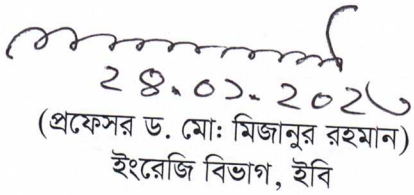 ২৪.০১.২০২৬
(প্রফেসর ড. মো: মিজানুর রহমান)
ইংরেজি বিভাগ, ইবি